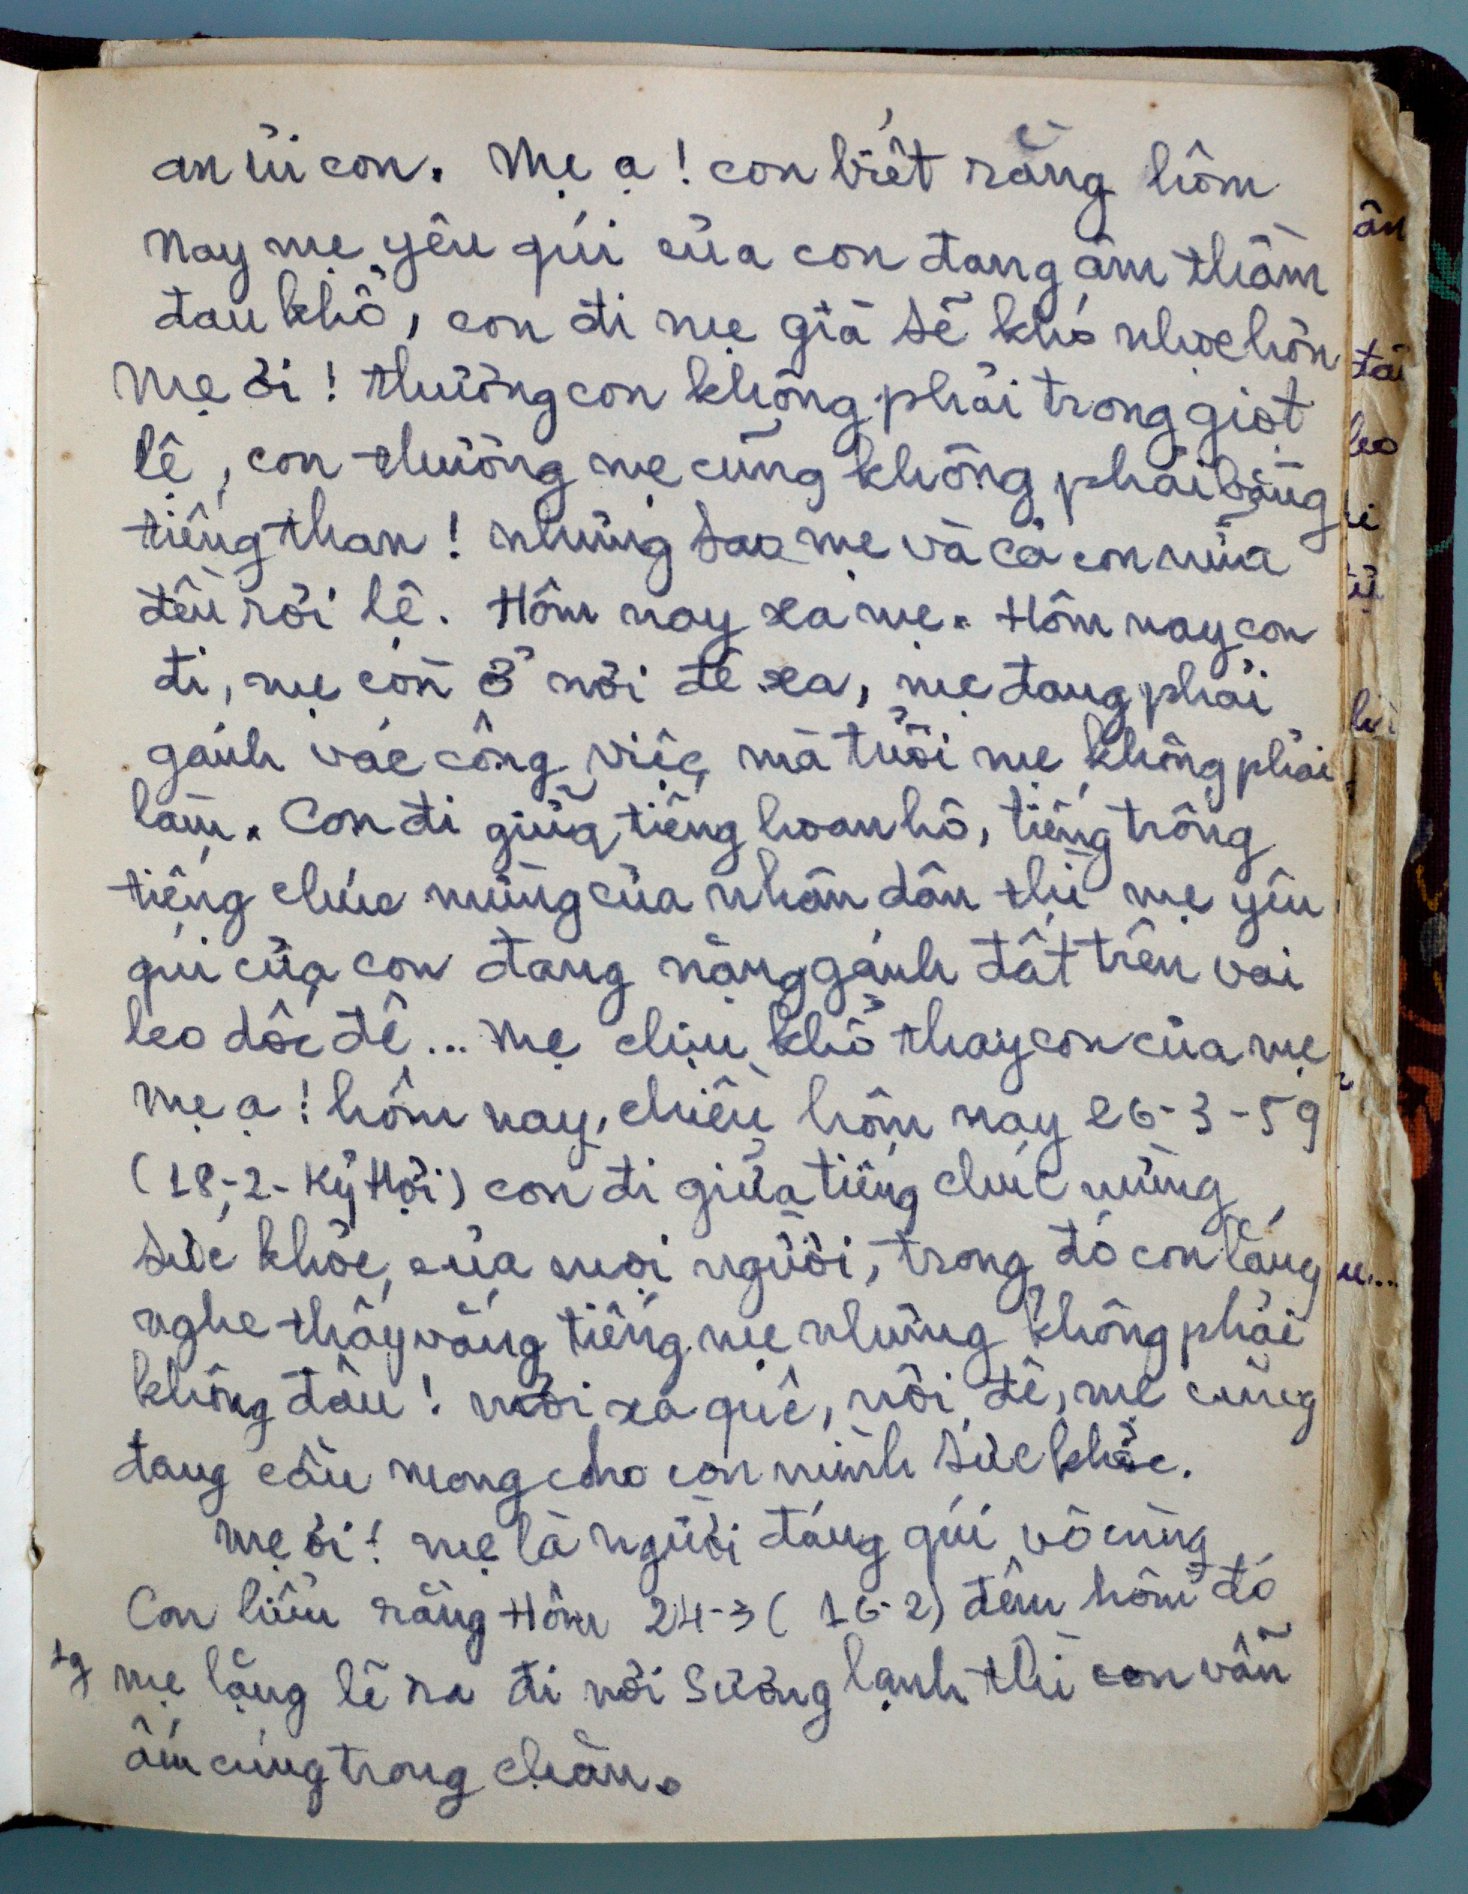 an ủi con. Mẹ ạ! con biết rằng hôm
nay mẹ yêu quí của con đang âm thầm
đau khổ, con đi mẹ già sẽ khó nhọc hơn
Mẹ ơi! thương con không phải trong giọt
lệ, con thương mẹ cũng không phải bằng
tiếng than! nhưng sao mẹ và cả con nữa
đều rơi lệ. Hôm nay xa mẹ. Hôm nay con
đi, mẹ còn ở nơi đê xa, mẹ đang phải
gánh vác công việc mà tuổi mẹ không phải
làm. Con đi giữa tiếng hoan hô, tiếng trống
tiếng chúc mừng của nhân dân thì mẹ yêu
quí của con đang nặng gánh đất trên vai
leo dốc đê... Mẹ chịu khổ thay con của mẹ
Mẹ ạ! hôm nay, chiều hôm nay 26-3-59
(18-2-Kỷ Hợi) con đi giữa tiếng chúc mừng
sức khỏe của mọi người, trong đó con lắng
nghe thấy vắng tiếng mẹ nhưng không phải
không đâu! nơi xa quê, nơi đê, mẹ cũng
đang cầu mong cho con mình sức khỏe.
Mẹ ơi! mẹ là người đáng quí vô cùng
Con hiểu rằng Hôm 24-3 (16-2) đêm hôm đó
mẹ lặng lẽ ra đi nơi sương lạnh thì con vẫn
ấm cúng trong chăn.